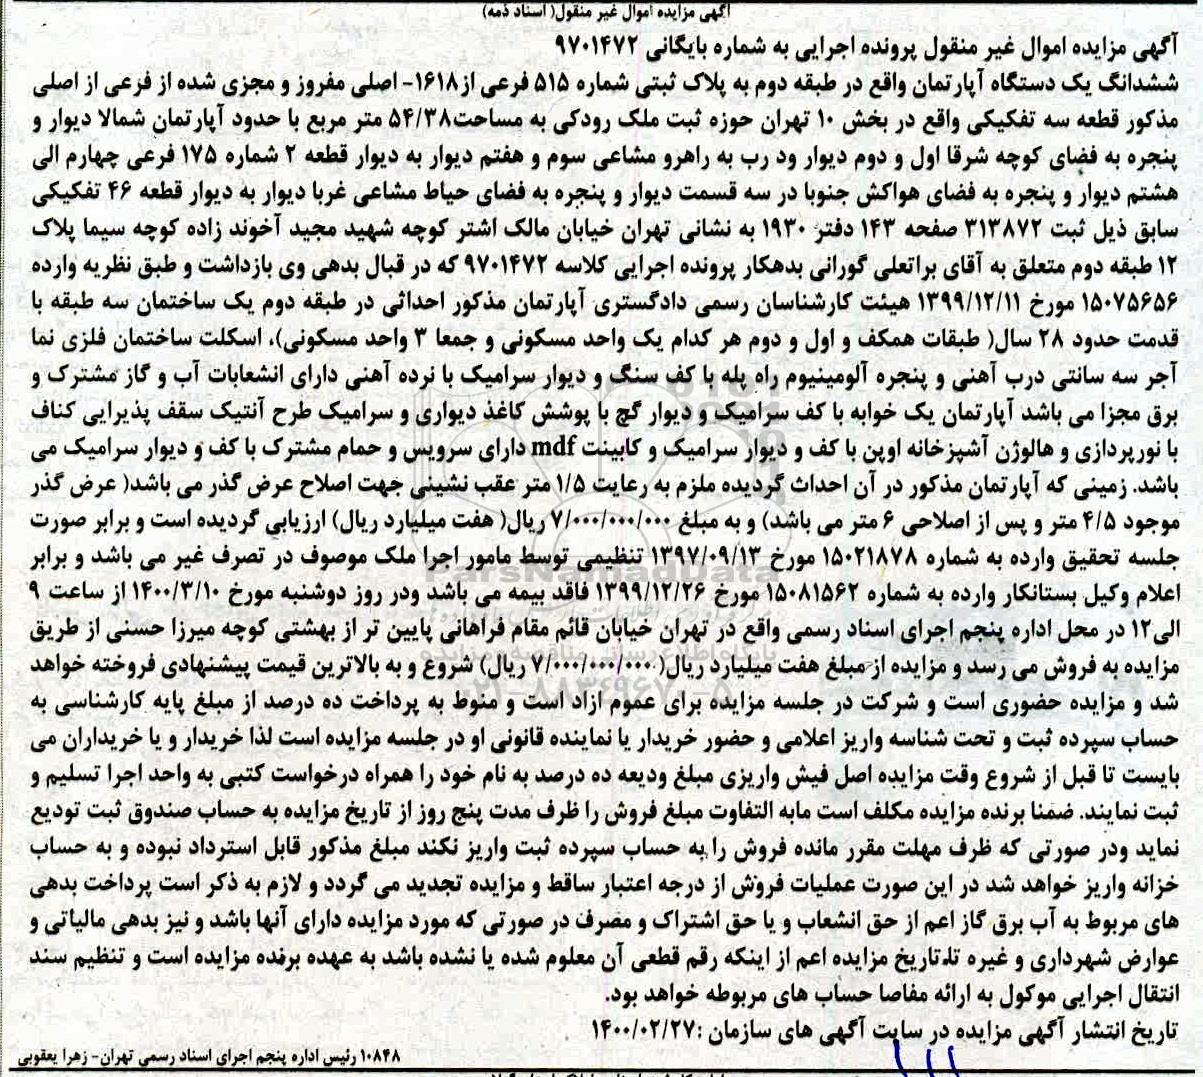 آگهی مزایده اموال غیر منقول( اسناد ذمه)
آگهی مزایده اموال غیر منقول پرونده اجرایی به شماره بایگانی ۹۷۰۱۴۷۲
ششدانگ یک دستگاه آپارتمان واقع در طبقه دوم به پلاک ثبتی شماره ۵۱۵ فرعی از۱۶۱۸- اصلی مفروز و مجزی شده از فرعی از اصلی
مذکور قطعه سه تفکیکی واقع در بخش ۱۰ تهران حوزه ثبت ملک رودکی به مساحت۵۴/۳۸ متر مربع با حدود آپارتمان شمالا دیوار و
پنجره به فضای کوچه شرقا اول و دوم دیوار ود رب به راهرو مشاعی سوم و هفتم دیوار به دیوار قطعه ۲ شماره ۱۷۵ فرعی چهارم الی
هشتم دیوار و پنجره به فضای هواکش جنوبا در سه قسمت دیوار و پنجره به فضای حیاط مشاعی غربا دیوار به دیوار قطعه ۴۶ تفکیکی
سابق ذیل ثبت ۳۱۳۸۷۲ صفحه ۱۴۳ دفتر ۱۹۳۰ به نشانی تهران خیابان مالک اشتر کوچه شهید مجید آخوند زاده کوچه سیما پلاک
۱۲ طبقه دوم متعلق به آقای براتعلی گورانی بدهکار پرونده اجرایی کلاسه ۹۷۰۱۴۷۲ که در قبال بدهی وی بازداشت و طبق نظریه وارده
۱۵۰۷۵۶۵۶ مورخ ۱۳۹۹/۱۲/۱۱ هیئت کارشناسان رسمی دادگستری آپارتمان مذکور احداثی در طبقه دوم یک ساختمان سه طبقه با
قدمت حدود ۲۸ سال( طبقات همکف و اول و دوم هر کدام یک واحد مسکونی و جمعا ۳ واحد مسکونی)، اسکلت ساختمان فلزی نما
آجر سه سانتی درب آهنی و پنجره آلومینیوم راه پله با کف سنگ و دیوار سرامیک با نرده آهنی دارای انشعابات آب و گاز مشترک و
برق مجزا می باشد آپارتمان یک خوابه با کف سرامیک و دیوار گچ با پوشش کاغذ دیواری و سرامیک طرح آنتیک سقف پذیرایی کناف
با نورپردازی و هالوژن آشپزخانه اوپن با کف و دیوار سرامیک و کابینت mdf دارای سرویس و حمام مشترک با کف و دیوار سرامیک می
باشد. زمینی که آپارتمان مذکور در آن احداث گردیده ملزم به رعایت ۱/۵ متر عقب نشینی جهت اصلاح عرض گذر می باشد( عرض گذر
موجود ۴/۵ متر و پس از اصلاحی ۶ متر می باشد) و به مبلغ ۷/۰۰۰/۰۰۰/۰۰۰ ریال( هفت میلیارد ریال) ارزیابی گردیده است و برابر صورت
جلسه تحقیق وارده به شماره ۱۵۰۲۱۸۷۸ مورخ ۱۳۹۷/۰۹/۱۳ تنظیمی توسط مامور اجرا ملک موصوف در تصرف غیر می باشد و برابر
اعلام وکیل بستانکار وارده به شماره ۱۵۰۸۱۵۶۲ مورخ ۱۳۹۹/۱۲/۲۶ فاقد بیمه می باشد ودر روز دوشنبه مورخ ۱۴۰۰/۳/۱۰ از ساعت ۹
الی۱۲ در محل اداره پنجم اجرای اسناد رسمی واقع در تهران خیابان قائم مقام فراهانی پایین تر از بهشتی کوچه میرزا حسنی از طریق
مزایده به فروش می رسد و مزایده از مبلغ هفت میلیارد ریال( ۷/۰۰۰/۰۰۰/۰۰۰ ریال) شروع و به بالاترین قیمت پیشنهادی فروخته خواهد
شد و مزایده حضوری است و شرکت در جلسه مزایده برای عموم ازاد است و منوط به پرداخت ده درصد از مبلغ پایه کارشناسی به
حساب سپرده ثبت و تحت شناسه واریز اعلامی و حضور خریدار یا نماینده قانونی او در جلسه مزایده است لذا خریدار و یا خریداران می
بایست تا قبل از شروع وقت مزایده اصل فیش واریزی مبلغ ودیعه ده درصد به نام خود را همراه درخواست کتبی به واحد اجرا تسلیم و
ثبت نمایند. ضمنا برنده مزایده مکلف است مابه التفاوت مبلغ فروش را ظرف مدت پنج روز از تاریخ مزایده به حساب صندوق ثبت تودیع
نماید ودر صورتی که ظرف مهلت مقرر مانده فروش را به حساب سپرده ثبت واریز نکند مبلغ مذکور قابل استرداد نبوده و به حساب
خزانه واریز خواهد شد در این صورت عملیات فروش از درجه اعتبار ساقط و مزایده تجدید می گردد و لازم به ذکر است پرداخت بدهی
های مربوط به آب برق گاز اعم از حق انشعاب و یا حق اشتراک و مصرف در صورتی که مورد مزایده دارای آنها باشد و نیز بدهی مالیاتی و
عوارض شهرداری و غیره تا تاریخ مزایده اعم از اینکه رقم قطعی آن معلوم شده یا نشده باشد به عهده برنده مزایده است و تنظیم سند
انتقال اجرایی موکول به ارائه مفاصا حساب های مربوطه خواهد بود.
تاریخ انتشار آگهی مزایده در سایت آگهی های سازمان :۱۴۰۰/۰۲/۲۷
۱۰۸۴۸ رئیس اداره پنجم اجرای اسناد رسمی تهران- زهرا یعقوبی